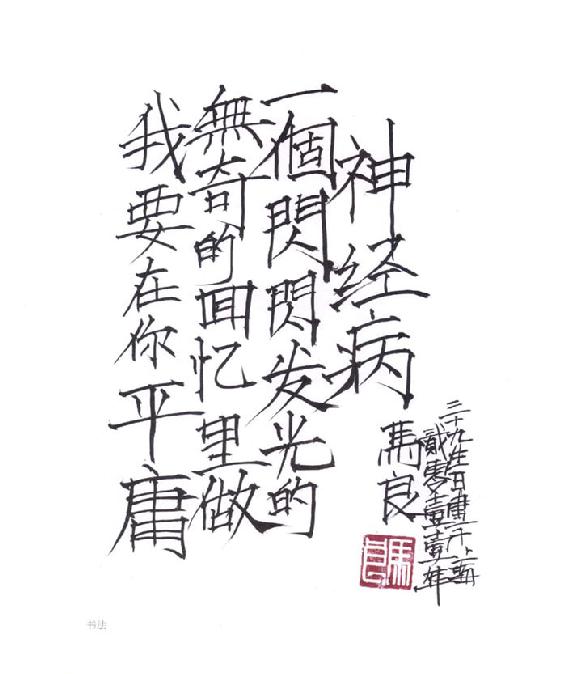 我要在你平庸
無奇的回忆里做
一個閃閃发光的
神经病
馬良
贰零壹壹年
馬良
书法